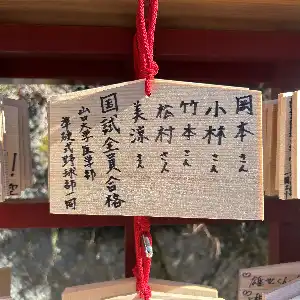 国本さん
小林さん
竹本さん
松村さん
美涼さん
国試全員合格
山口大学医学部
準硬式野球部一同